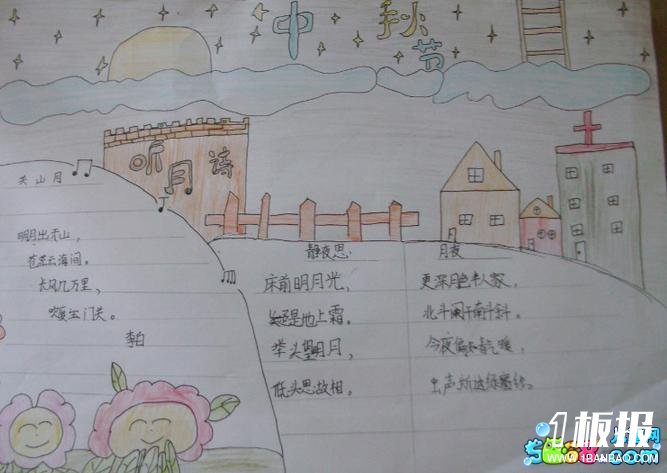 中秋节
听月诗
关山月
明月出天山，
苍茫云海间。
长风几万里，
李白
静夜思
床前明月光，
是地上霜。
举头望明月，
低头思故相。
月夜
更深月色半人家，
北斗阑干南斗斜。
今夜偏
虫声新透绿窗纱。
1板报
WWW.1BANBAO.COM